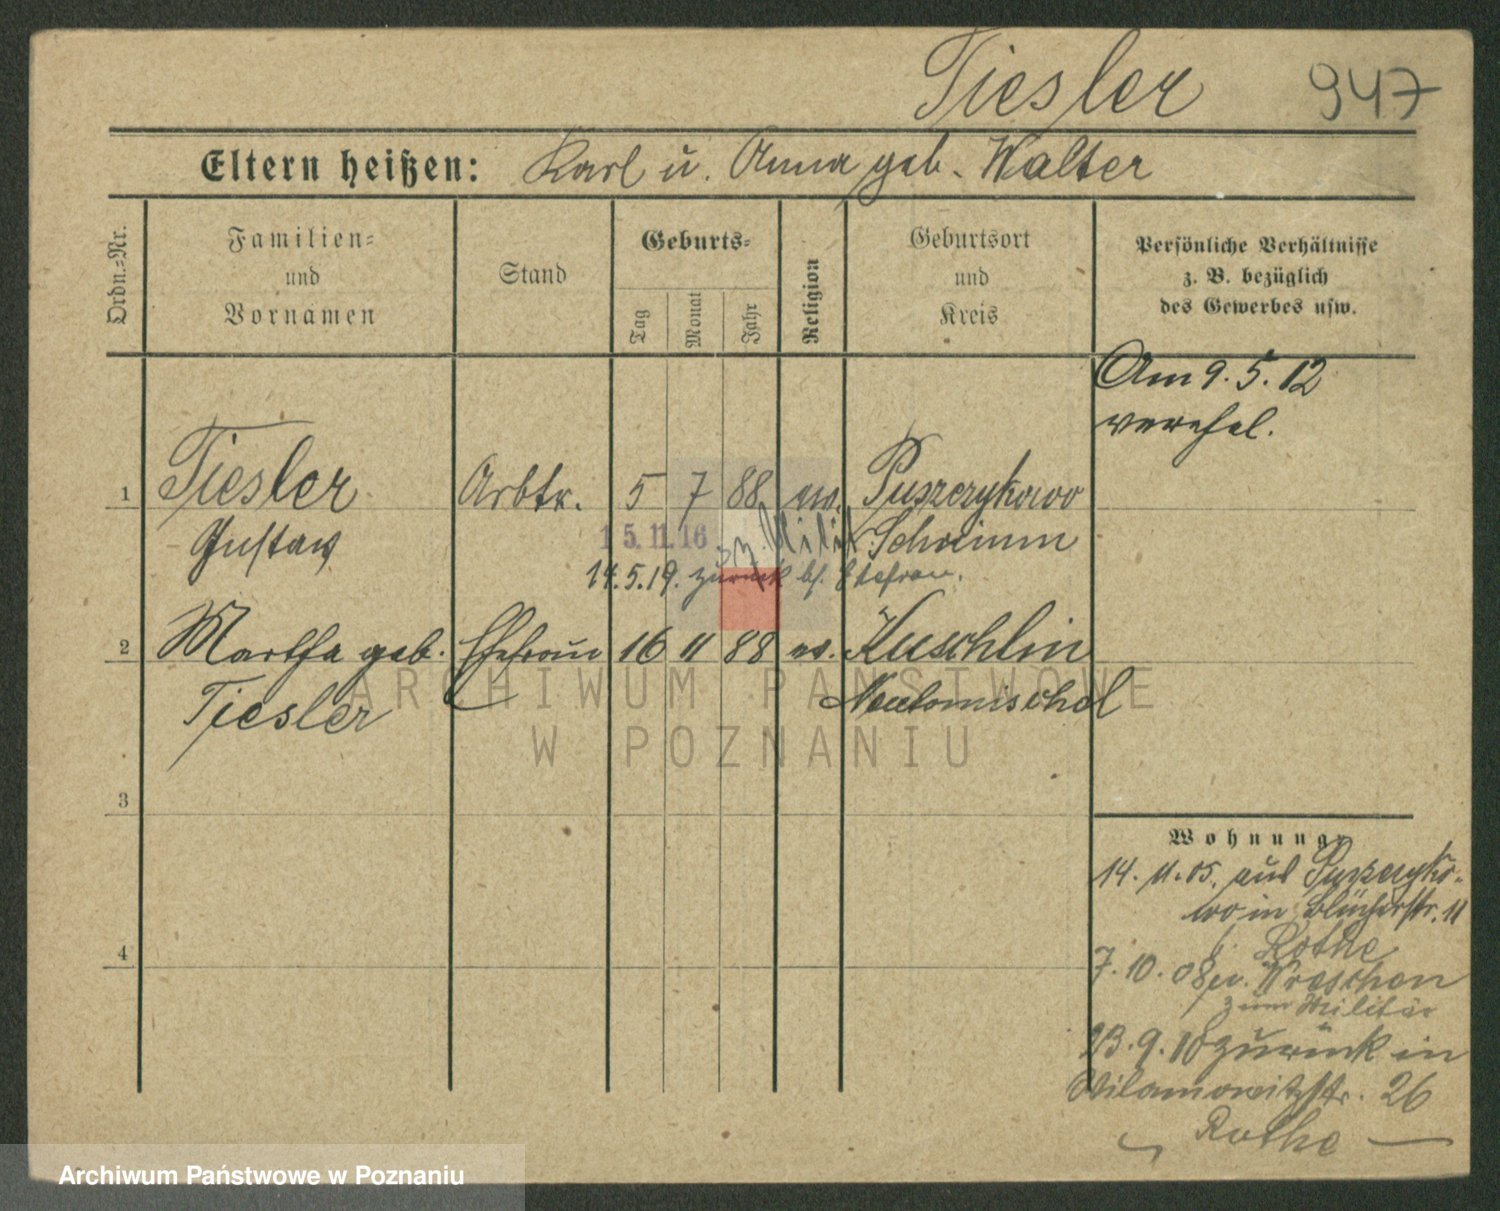 Tiesler 947
Eltern heißen: Karl u. Anna geb. Walter
Ordn.-Nr.
Familien-
und
Vornamen
Stand
Geburts-
Tag
Monat
Jahr
Religion
Geburtsort
und
Kreis
Persönliche Verhältnisse
z. B. bezüglich
des Gewerbes usw.
Am 9. 5. 12
verehel.
1 Tiesler Arbtr. 5 7 88 ev. Puszczykowo
Gustav 15.11.16 z. Milit. Schrimm
14.5.19. zurück bs. Ehefrau.
2 Martha geb. Ehefrau 16 11 88 ev. Kuschlin
Tiesler Neutomischel
ARCHIWUM PAŃSTWOWE
W POZNANIU
3
4
Wohnung
14. 11. 05. aus Puszczyko-
wo in Blücherstr. 11
b. Rothe
7. 10. 08 n. Wreschen
zum Militär
23. 9. 10 zurück in
Wilamowitzstr. 26
Rothe
Archiwum Państwowe w Poznaniu